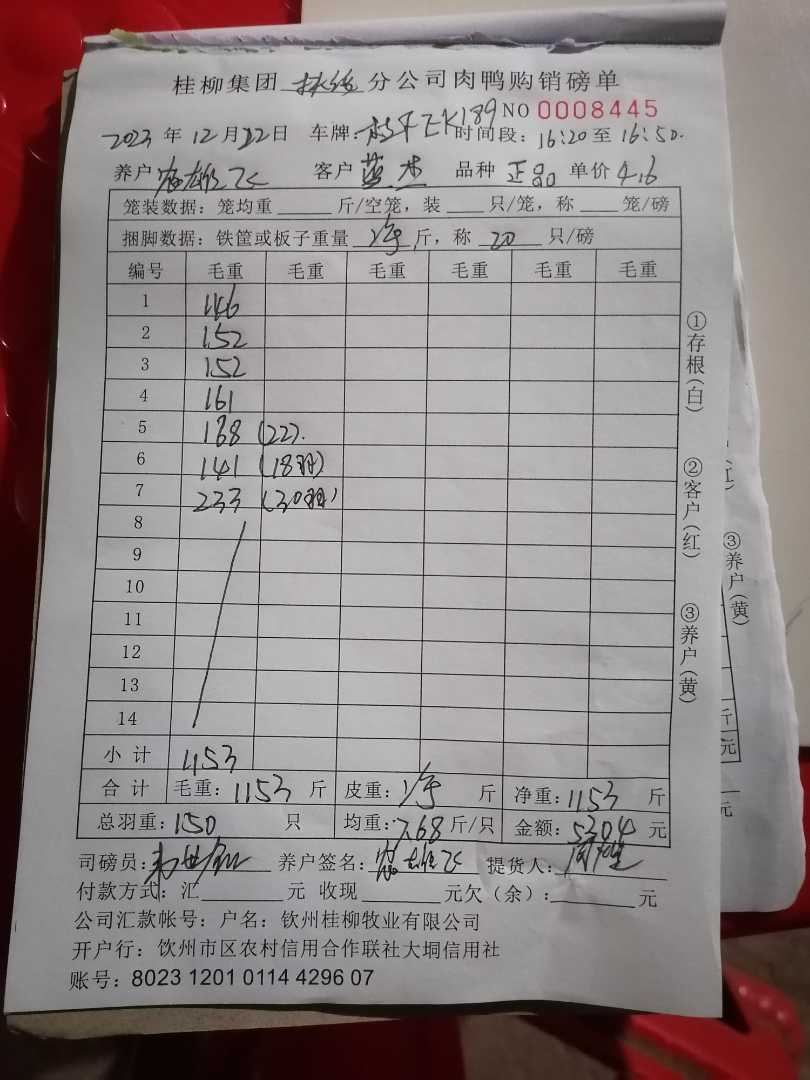 桂柳集团 分公司肉鸭购销磅单
NO 0008445
2023 年 12 月 22 日 车牌: 189 时间段: 16:20 至 16:50.
养户 客户 蓝杰 品种 正品 单价 4.6
笼装数据: 笼均重 斤/空笼, 装 只/笼, 称 笼/磅
捆脚数据: 铁筐或板子重量 净 斤, 称 20 只/磅
编号 毛重 毛重 毛重 毛重 毛重 毛重
1 146
2 152
3 152
4 161
5 168 (22).
6 141 (18羽)
7 233 (30羽)
8
9
10
11
12
13
14
小计 1153
合计 毛重: 1153 斤 皮重: 净 斤 净重: 1153 斤
总羽重: 150 只 均重: 7.68 斤/只 金额: 5304 元
司磅员: 养户签名: 提货人:
付款方式: 汇 元 收现 元欠(余): 元
公司汇款帐号: 户名: 钦州桂柳牧业有限公司
开户行: 钦州市区农村信用合作联社大垌信用社
账号: 8023 1201 0114 4296 07
①存根(白)
②客户(红)
③养户(黄)
(红)
③养户(黄)
斤
元
元